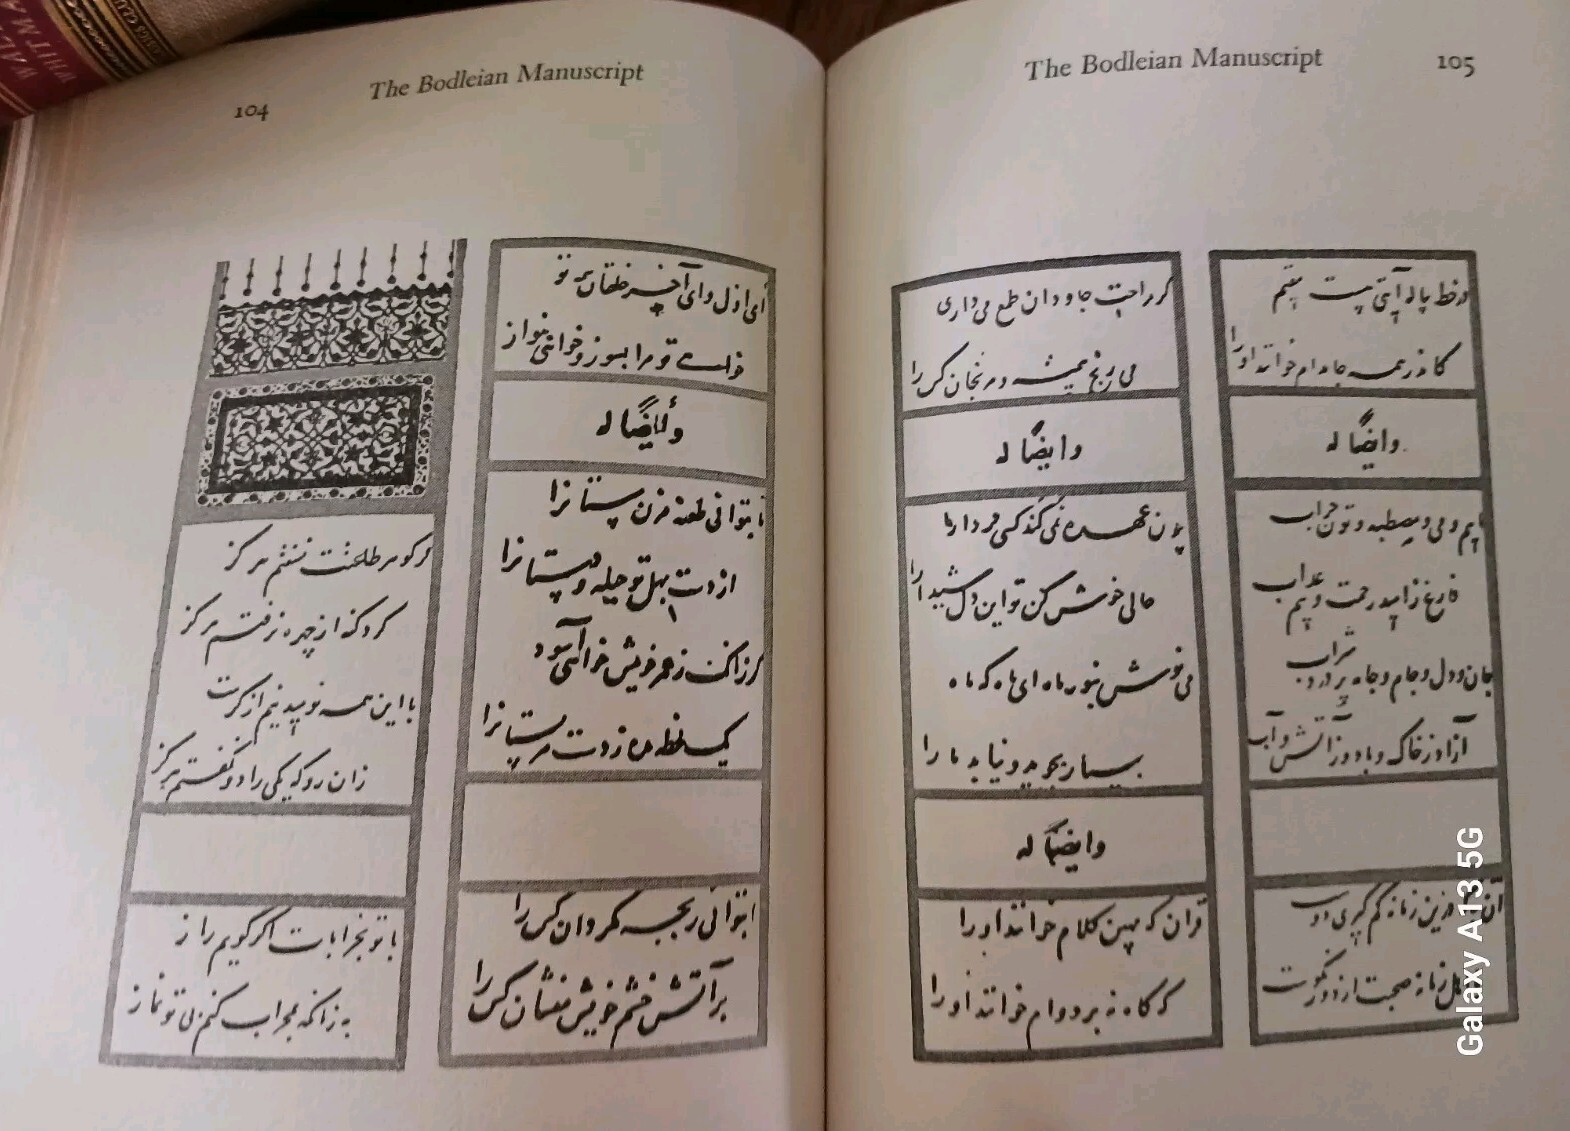 WHITMA
104
The Bodleian Manuscript
گر گوهر طاعت نسفتم هرگز
گرد گنه از چهره نرفتم هرگز
با این همه نومید نیم از کرمت
زان رو که یکی را دو نگفتم هرگز
با تو بخرابات اگر گویم راز
به زانکه بمحراب کنم بی تو نماز
ای اول و ای آخر خلقان همه تو
خواهی تو مرا بسوز و خواهی بنواز
وایضاً له
تا بتوانی طعنه مزن مستانرا
از دست بهل تو حیله و دستانرا
گر زانکه ز عمر خویش خواهی آسود
یک لحظه مده ز دست مر مستانرا
تا بتوانی رنجه مگردان کس را
بر آتش خشم خویش منشان کس را
The Bodleian Manuscript
105
گر راحت جاودان طمع می داری
می رنج همیشه و مرنجان کس را
وایضاً له
چون عهده نمی کند کسی فردا را
حالی خوش کن تو این دل شیدا را
می نوش بنور ماه ای ماه که ماه
بسیار بجوید و نیابد ما را
وایضاً له
قران که مهین کلام خوانند او را
گه گاه نه بر دوام خوانند او را
در خط پیاله آیتی هست مقیم
کاندر همه جا مدام خوانند او را
وایضاً له
مائیم و می و مصطبه و تون خراب
فارغ ز امید رحمت و بیم عذاب
جان و دل و جام و جامه پر درد شراب
آزاد ز خاک و باد و ز آتش و آب
آن به که درین زمانه کم گیری دوست
با اهل زمانه صحبت از دور نکوست